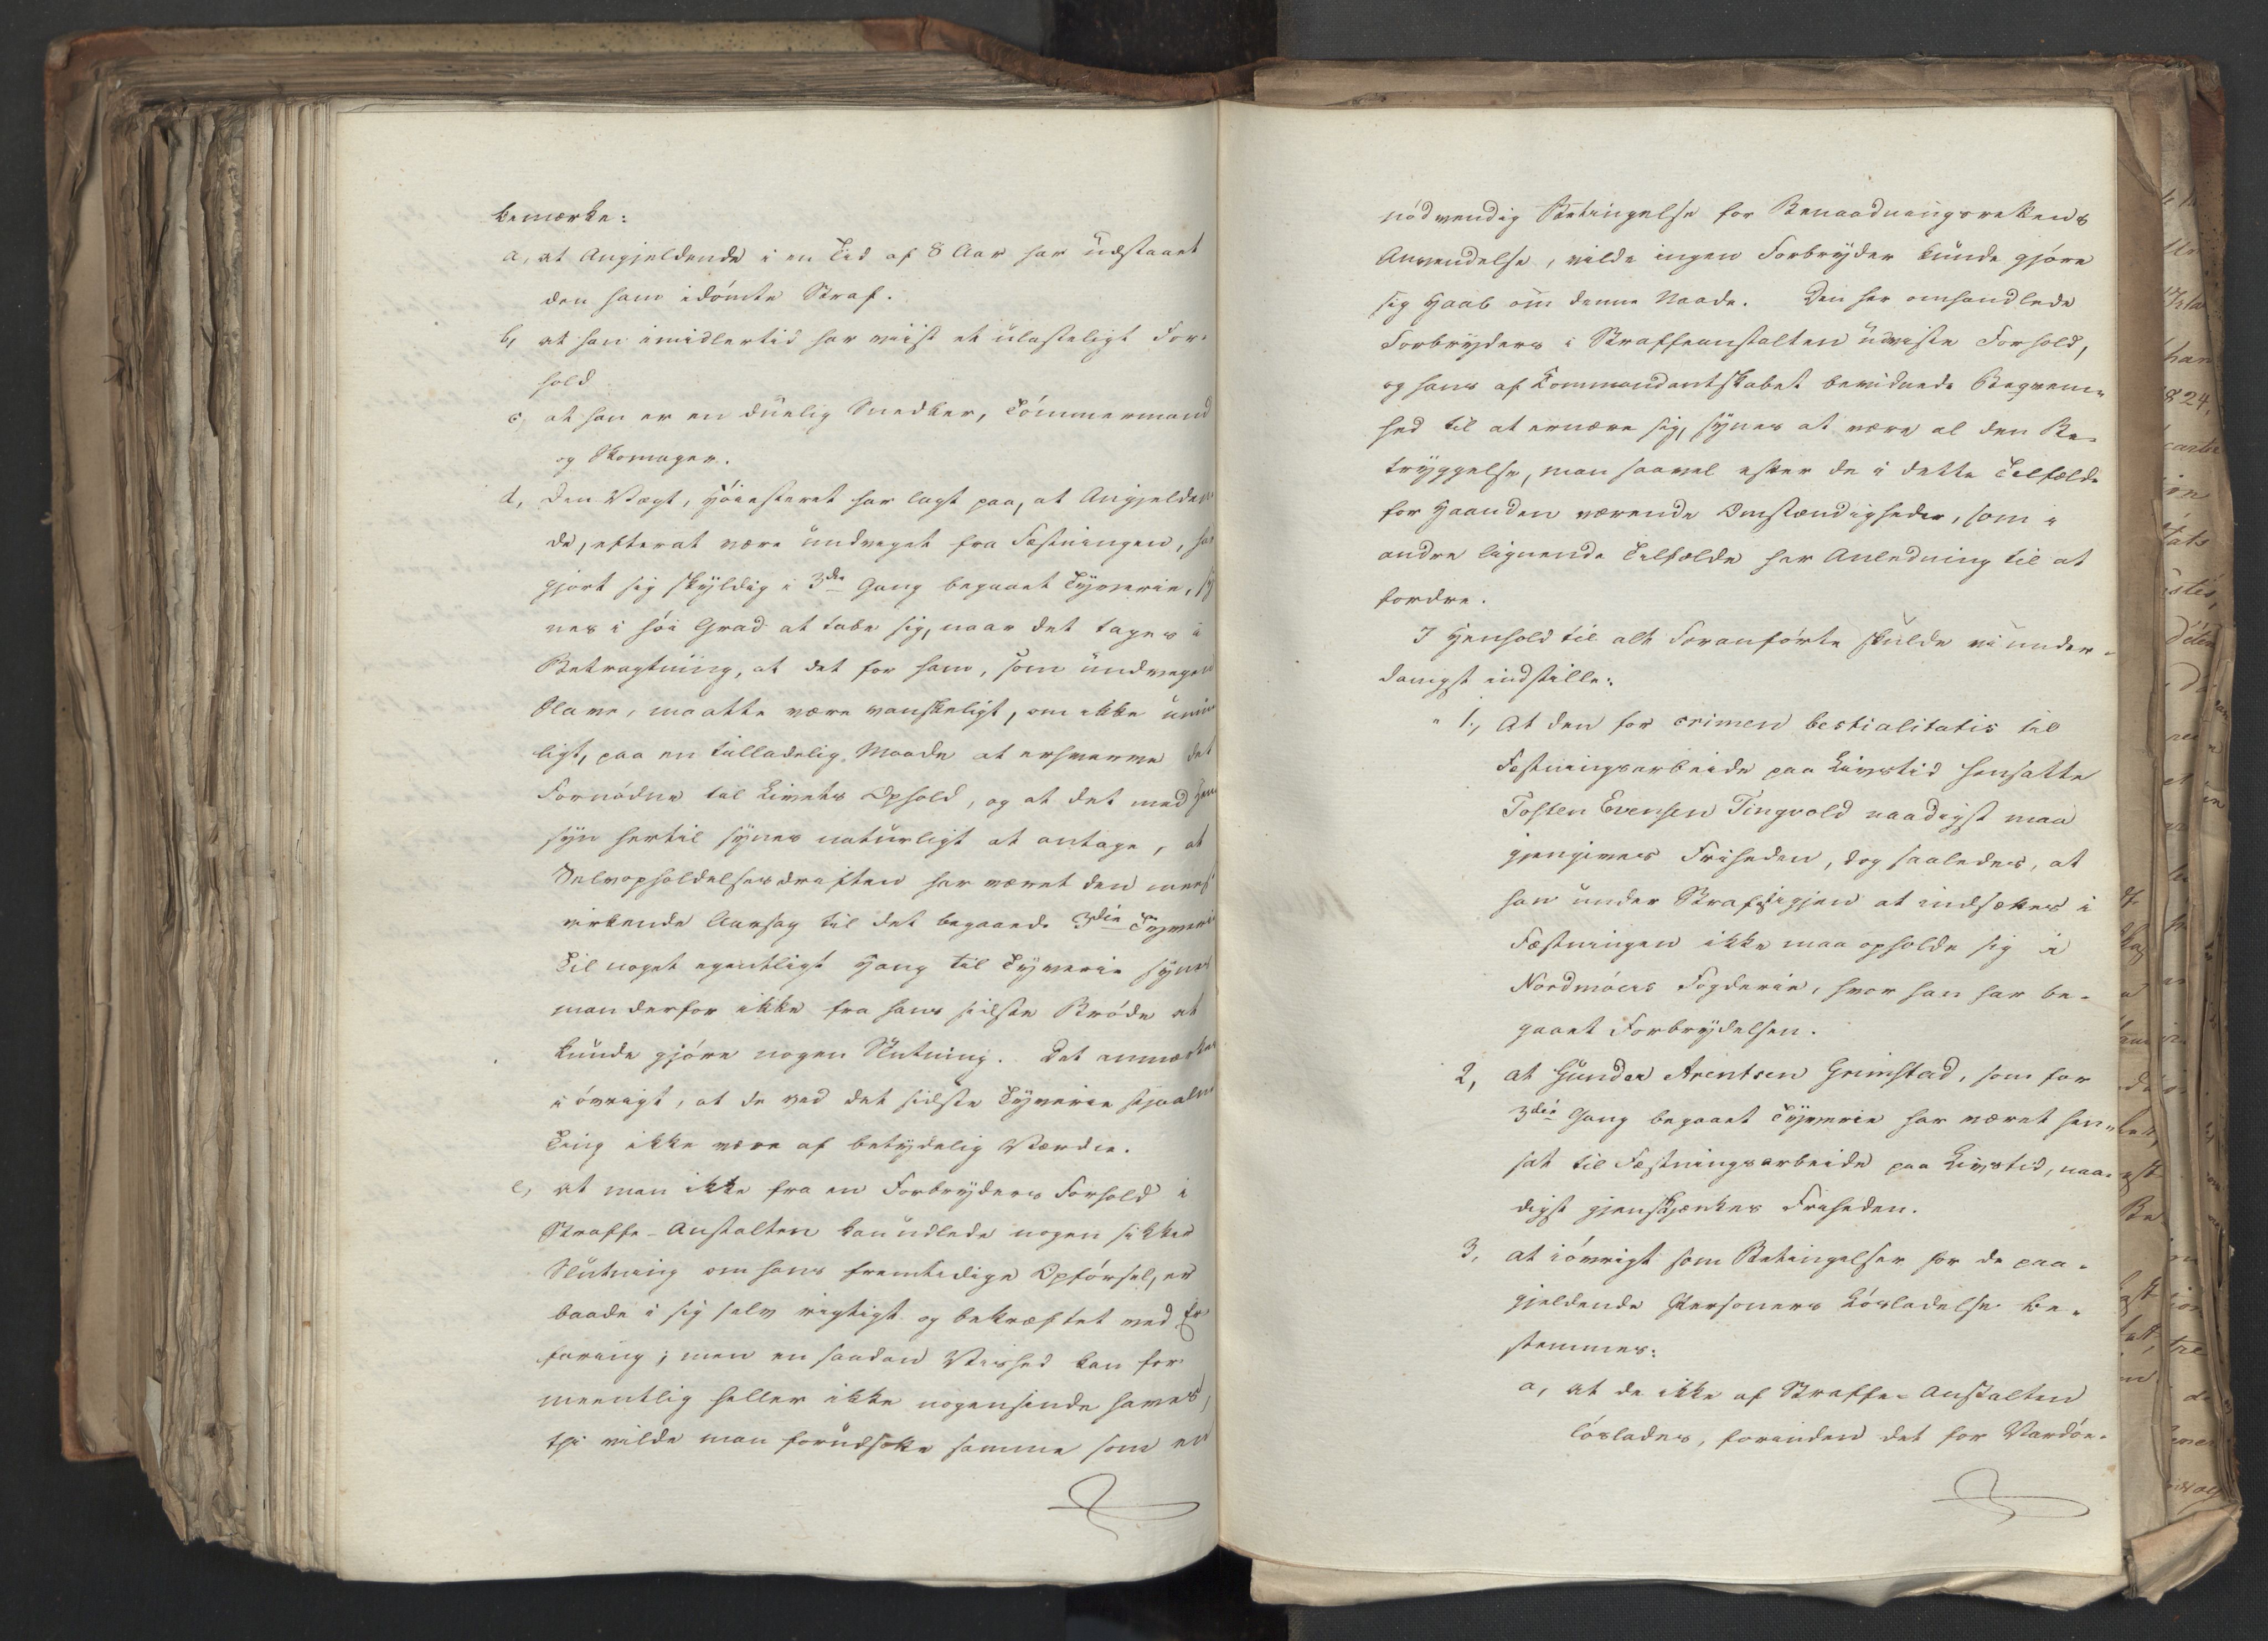 bemærke:
a, at Angjeldende i en Tid af 8 Aar har udstaaet
den ham idömte Straf.
b, at han imidlertid har viist et ulasteligt For-
hold
c, at han er en duelig Snedker, Tömmermand
og Skomager.
d, Den Vægt, Höiesteret har lagt paa, at Angjelden-
de, efterat være undveget fra Fæstningen, har
gjort sig skyldig i 3die Gang begaaet Tyverie, sy
nes i höi Grad at tabe sig, naar det tages i
Betragtning, at det for ham, som undvegen
Slave, maatte være vanskeligt, om ikke umu
ligt, paa en tilladelig Maade at erhverve det
Fornödne til Livets Ophold, og at det med Hen
syn hertil synes naturligt at antage, at
Selvopholdelsesdriften har været den meest
virkende Aarsag til det begaaede 3die Tyverie
Til noget egentligt Hang til Tyverie synes
man derfor ikke fra hans sidste Bröde at
kunde gjöre nogen Slutning. Det anmærkes
i övrigt, at de ved det sidste Tyverie stjaalne
Ting ikke vare af betydelig Værdie.
e, at man ikke fra en Forbryders Forhold i
Straffe-Anstalten kan udlede nogen sikker
Slutning om hans fremtidige Opförsel, er
baade i sig selv rigtigt og bekræftet ved Er-
faring; men en saadan Vished kan for
meentlig heller ikke nogensinde haves,
thi vilde man forudsætte samme som en
nödvendig Betingelse for Benaadningsrettens
Anvendelse, vilde ingen Forbryder kunde gjöre
sig Haab om denne Naade. Den her omhandlede
Forbryders i Straffeanstalten udviste Forhold,
og hans af Commandantskabet bevidnede Beqvem-
hed til at ernære sig, synes at være al den Be-
tryggelse, man saavel efter de i dette Tilfælde
for Haanden værende Omstændigheder, som i
andre lignende Tilfælde har Anledning til at
fordre.
I Henhold til alt Foranförte skulde vi under-
danigst indstille:
1, At den for crimen bestialitatis til
Fæstningsarbeide paa Livstid hensatte
Tosten Evensen Tingvold naadigst maa
gjengives Friheden, dog saaledes, at
han under Straf igjen at indsættes i
Fæstningen ikke maa opholde sig i
Nordmöers Fogderie, hvor han har be-
gaaet Forbrydelsen.
2, at Gunder Arentsen Grimstad, som for
3die Gang begaaet Tyverie har været hen-
sat til Fæstningsarbeide paa Livstid, naa-
digst gjenskjænkes Friheden.
3, at iövrigt som Betingelser for de paa-
gjeldende Personers Lösladelse be-
stemmes:
a, at de ikke af Straffe-Anstalten
löslades, forinden det for Vardöe-